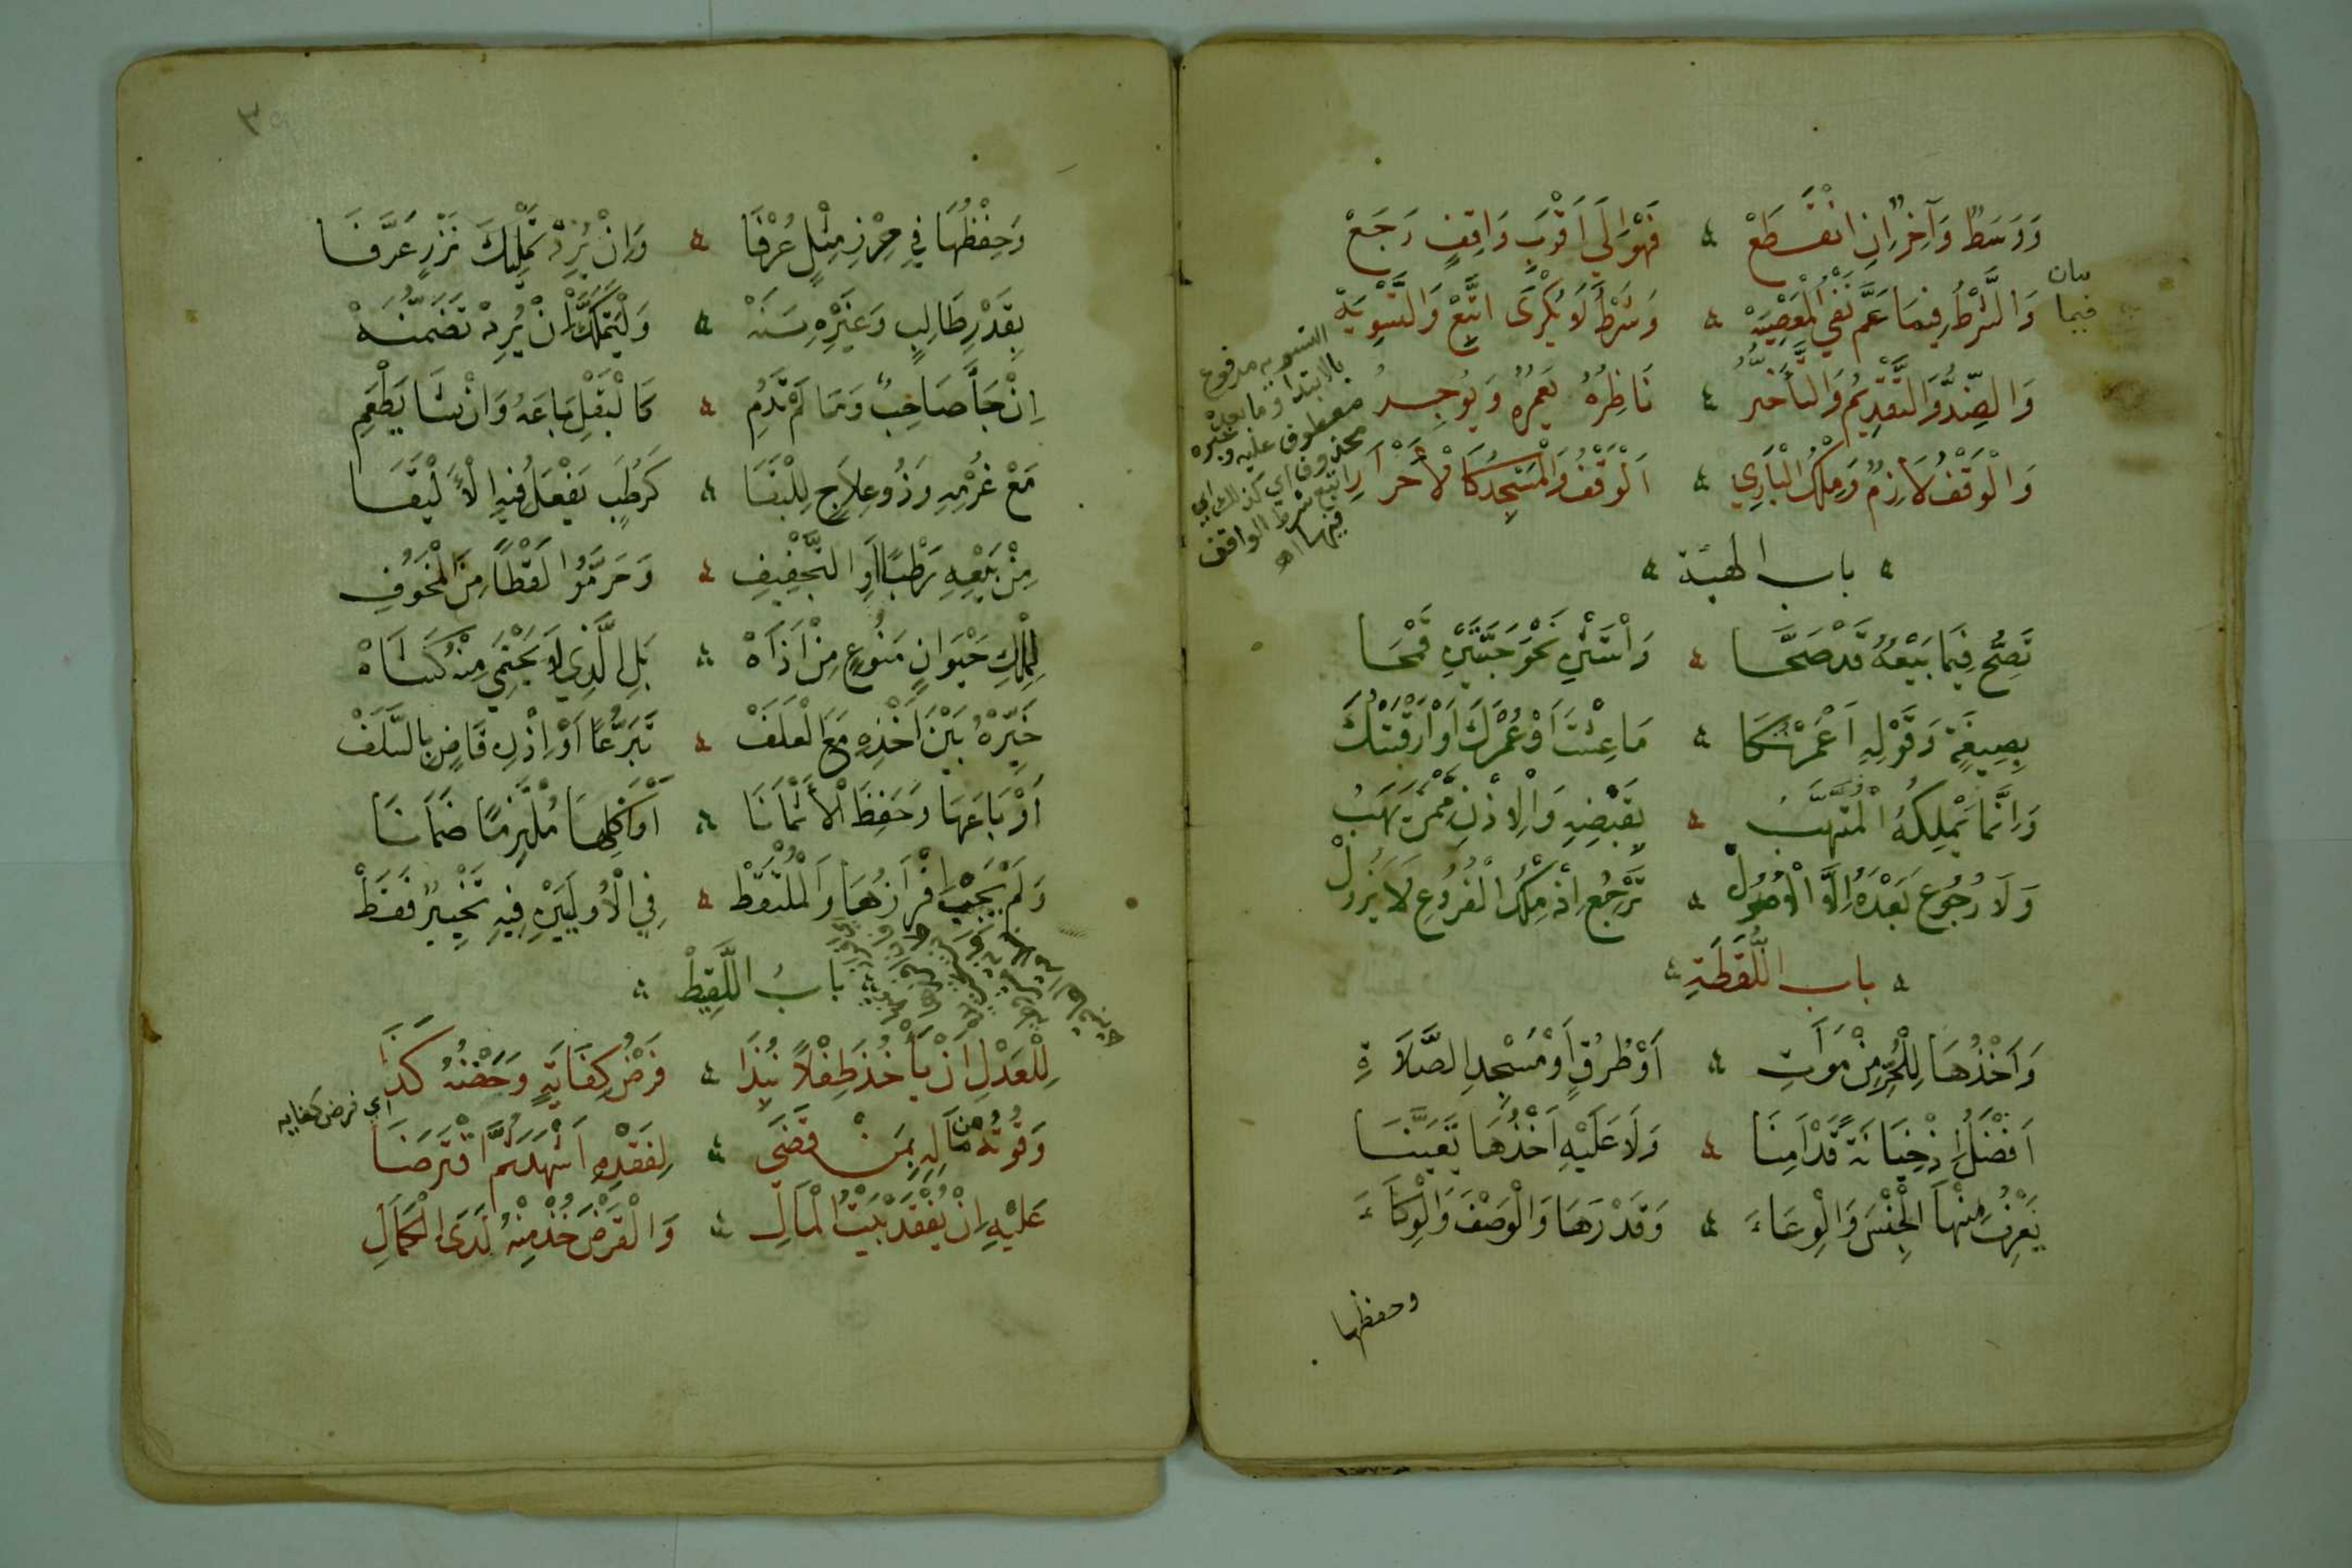 وَوَسَطٌ وَآخِرٌ اِنِ انْقَطَعْ ۞ فَهْوَ اِلَى اَقْرَبِ وَاقِفٍ رَجَعْ
وَالشَّرْطُ فِيمَا عَمَّ نَفْيَ الْمَعْصِيَهْ ۞ وَشَرْطُ لَا يُكْرَى اتَّبِعْ وَالتَّسْوِيَهْ
بيان فيما
وَالضِّدُّ وَالتَّقْدِيمُ وَالتَّأَخُّرُ ۞ نَاظِرُهُ يَعْمُرُهُ وَيُوجِرُ
وَالْوَقْفُ لَازِمٌ وَمِلْكُ الْبَارِي ۞ اَلْوَقْفُ وَالْمَسْجِدُ كَالْأَحْرَارِ
التسويه مرفوع
بالابتدا وما بعده
معطوف عليه وخبره
محذوف اي كذلك اي
اتبع شرط الواقف
فيها اه
باب الهبة
تَصِحُّ فِيمَا بَيْعُهُ قَدْ صَحَّا ۞ وَاسْتَثْنِ نَحْوَ حَبَّتَيْنِ قَمْحَا
بِصِيغَةٍ وَقَوْلِهِ اَعْمَرْتُكَا ۞ مَا عِشْتَ اَوْ عُمْرَكَ اَوْ اَرْقَبْتُكَ
وَاِنَّمَا يَمْلِكُهُ الْمُتَّهِبُ ۞ بِقَبْضِهِ وَالْاِذْنِ مِمَّنْ يَهَبُ
وَلَا رُجُوعَ بَعْدَهُ اِلَّا الْاُصُولْ ۞ تَرْجِعُ اِذْ مِلْكُ الْفُرُوعِ لَا يَزُولْ
باب اللُّقَطَةِ
وَاَخْذُهَا لِلْحُرِّ مِنْ مَوَاتِ ۞ اَوْ طُرُقٍ اَوْ مَسْجِدِ الصَّلَاةِ
اَفْضَلُ اِذْ خِيَانَةً قَدْ اَمِنَا ۞ وَلَا عَلَيْهِ اَخْذُهَا تَعَيَّنَا
يَعْرِفُ مِنْهَا الْجِنْسَ وَالْوِعَاءَ ۞ وَقَدْرَهَا وَالْوَصْفَ وَالْوِكَاءَ
وحفظها
وَحِفْظُهَا فِي حِرْزِ مِثْلٍ عُرْفَا ۞ وَاِنْ يُرِدْ تَمْلِيكَ نَزْرٍ عَرَّفَا
بِقَدْرِ طَالِبٍ وَغَيْرِهِ سَنَهْ ۞ وَلْيَتَمَلَّكْ اِنْ يُرِدْ تَضَمُّنَهْ
اِنْ جَاَ صَاحِبٌ وَمَا لَمْ تَدُمِ ۞ كَالْبَقْلِ بَاعَهُ وَاِنْ شَا يَطْعَمِ
مَعْ غُرْمِهِ وَذُو عِلَاجٍ لِلْبَقَا ۞ كَرُطَبٍ يَفْعَلُ فِيهِ الْأَلْيَقَا
مِنْ بَيْعِهِ رَطْبًا اَوِ التَّجْفِيفِ ۞ وَحَرَّمُوا لَقْطًا مِنَ الْمَخُوفِ
لِمِلْكِ حَيْوَانٍ مَنُوعٍ مِنْ اَذَاهْ ۞ بَلِ الَّذِي لَا يَحْتَمِي مِنْهُ كَشَاهْ
خَيِّرْهُ بَيْنَ اَخْذِهِ مَعَ الْعَلَفْ ۞ تَبَرُّعًا اَوْ اِذْنِ قَاضٍ بِالسَّلَفْ
اَوْ بَاعَهَا وَحَفِظَ الْأَثْمَانَا ۞ اَوْ اَكْلِهَا مُلْتَزِمًا ضَمَانَا
وَلَمْ يَجِبْ اِفْرَازُهَا وَالْمُلْتَقَطْ ۞ فِي الْاُولَيَيْنِ فِيهِ تَخْيِيرٌ فَقَطْ
بَابُ اللَّقِيطْ
لِلْعَدْلِ اَنْ يَأْخُذَ طِفْلًا نُبِذَا ۞ فَرْضُ كِفَايَةٍ وَحَضْنُهُ كَذَا
اي فرض كفايه
وَقُوتُهُ مِنْ مَالِهِ بِمَنْ قَضَى ۞ لِفَقْدِهِ اَشْهَدَ ثُمَّ اقْتَرَضَا
عَلَيْهِ اِنْ يُفْقَدْ بَيْتُ الْمَالِ ۞ وَالْقَرْضَ خُذْ مِنْهُ لَدَى الْكَمَالِ